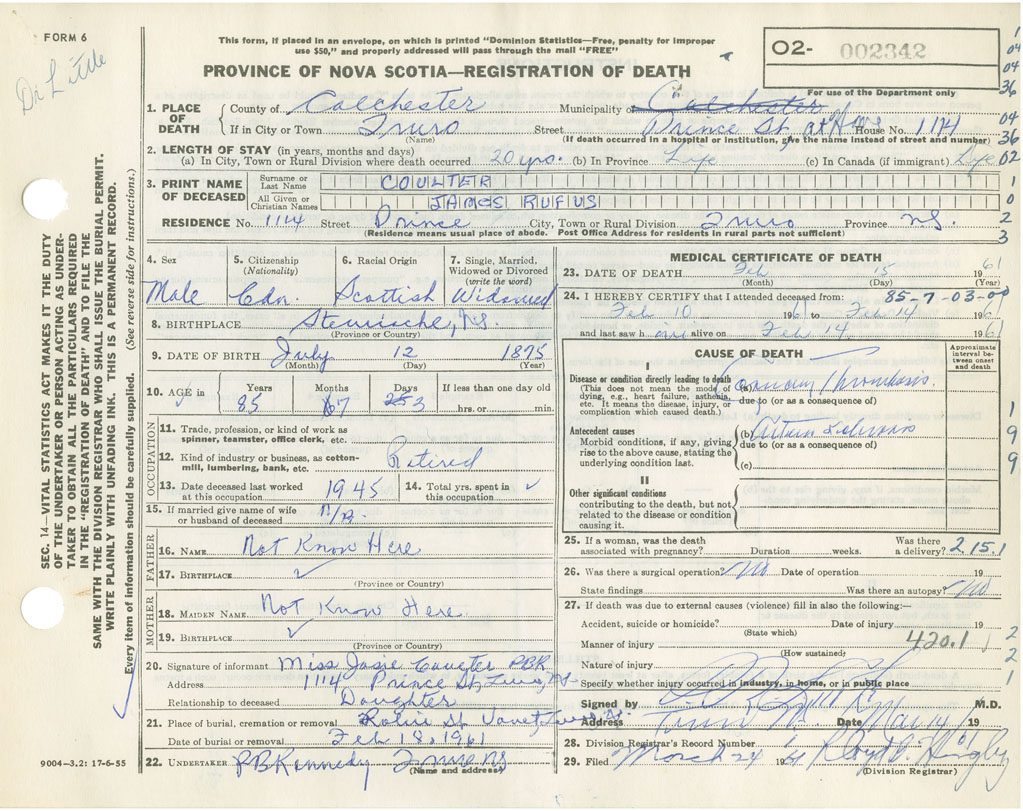 FORM 6
Dr Little
This form, if placed in an envelope, on which is printed "Dominion Statistics—Free, penalty for improper
use $50," and properly addressed will pass through the mail "FREE"
02- 002342
For use of the Department only
PROVINCE OF NOVA SCOTIA—REGISTRATION OF DEATH
1. PLACE OF DEATH
County of Colchester Municipality of Colchester
If in City or Town Truro Street Prince St. at Home House No. 1114
(Name) (If death occurred in a hospital or institution, give the name instead of street and number)
2. LENGTH OF STAY (in years, months and days)
(a) In City, Town or Rural Division where death occurred 20 yrs. (b) In Province Life (c) In Canada (if immigrant) Life
3. PRINT NAME OF DECEASED
Surname or Last Name COULTER
All Given or Christian Names JAMES RUFUS
RESIDENCE No. 1114 Street Prince City, Town or Rural Division Truro Province N.S.
(Residence means usual place of abode. Post Office Address for residents in rural parts not sufficient)
04
04
36
04
36
02
1
0
2
3
1
9
9
2
2
1
SEC. 14—VITAL STATISTICS ACT MAKES IT THE DUTY
OF THE UNDERTAKER OR PERSON ACTING AS UNDER-
TAKER TO OBTAIN ALL THE PARTICULARS REQUIRED
IN THE "REGISTRATION OF DEATH" AND TO FILE THE
SAME WITH THE DIVISION REGISTRAR WHO SHALL ISSUE THE BURIAL PERMIT.
WRITE PLAINLY WITH UNFADING INK. THIS IS A PERMANENT RECORD.
Every item of information should be carefully supplied. (See reverse side for instructions.)
4. Sex
Male
5. Citizenship (Nationality)
Cdn.
6. Racial Origin
Scottish
7. Single, Married, Widowed or Divorced (write the word)
Widowed
8. BIRTHPLACE N.S.
(Province or Country)
9. DATE OF BIRTH July 12 1875
(Month) (Day) (Year)
10. AGE in Years Months Days If less than one day old
85 7 3 hrs. or min.
OCCUPATION
11. Trade, profession, or kind of work as
spinner, teamster, office clerk, etc.
12. Kind of industry or business, as cotton-
mill, lumbering, bank, etc. Retired
13. Date deceased last worked at this occupation 1945
14. Total yrs. spent in this occupation
15. If married give name of wife
or husband of deceased
FATHER
16. NAME Not Know Here
17. BIRTHPLACE
(Province or Country)
MOTHER
18. MAIDEN NAME Not Know Here
19. BIRTHPLACE
(Province or Country)
20. Signature of informant Miss Josie Coulter PBK
Address 1114 Prince St, Truro, NS
Relationship to deceased Daughter
21. Place of burial, cremation or removal Robie St
Date of burial or removal Feb 18, 1961
22. UNDERTAKER P B Kennedy Truro NS
(Name and address)
9004—3.2: 17-6-55
MEDICAL CERTIFICATE OF DEATH
23. DATE OF DEATH Feb 15 1961
(Month) (Day) (Year)
24. I HEREBY CERTIFY that I attended deceased from: 85-7-03-00
Feb 10 1961 to Feb 14 1961
and last saw him alive on Feb 14 1961
CAUSE OF DEATH
Approximate interval between onset and death
I
Disease or condition directly leading to death
(This does not mean the mode of
dying, e.g., heart failure, asthenia,
etc. It means the disease, injury, or
complication which caused death.)
(a) Coronary Thrombosis.
due to (or as a consequence of)
Antecedent causes
Morbid conditions, if any, giving
rise to the above cause, stating the
underlying condition last.
(b)
due to (or as a consequence of)
(c)
II
Other significant conditions
contributing to the death, but not
related to the disease or condition
causing it.
25. If a woman, was the death
associated with pregnancy? Duration weeks. Was there a delivery? 2.15.1
26. Was there a surgical operation? No Date of operation 19
State findings Was there an autopsy? No
27. If death was due to external causes (violence) fill in also the following:—
Accident, suicide or homicide? Date of injury 19
(State which)
Manner of injury 420.1
(How sustained)
Nature of injury
Specify whether injury occurred in industry, in home, or in public place
Signed by M.D.
Address Truro Date Mar 14 19
28. Division Registrar's Record Number
29. Filed March 24 1961
(Division Registrar)